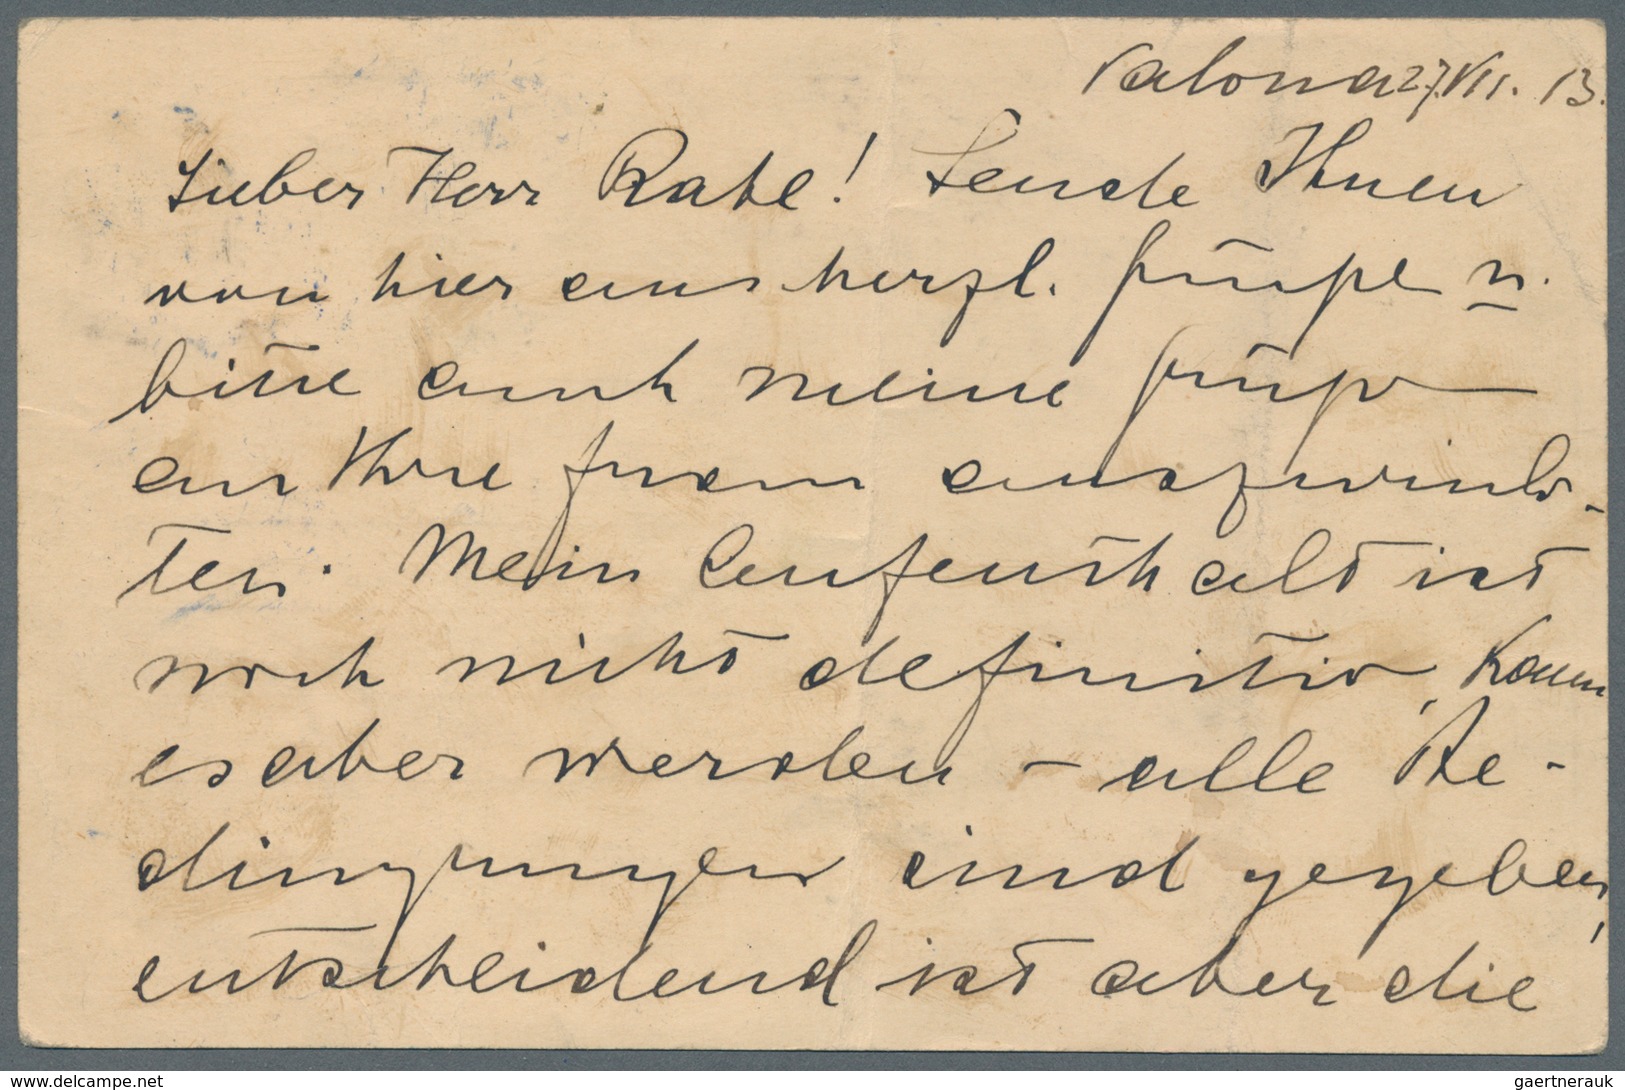 Valona 27.VII.13.
Lieber Herr Rate! Sende Ihnen
von hier aus herzl. Grüße u.
bitte auch meine Grüße
an Ihre Frau auszurich-
ten. Mein Aufenthalt ist
noch nicht definitiv, kann
es aber werden - alle Be-
dingungen sind gegeben,
entscheidend ist aber die
www.delcampe.net
gaertnerauk